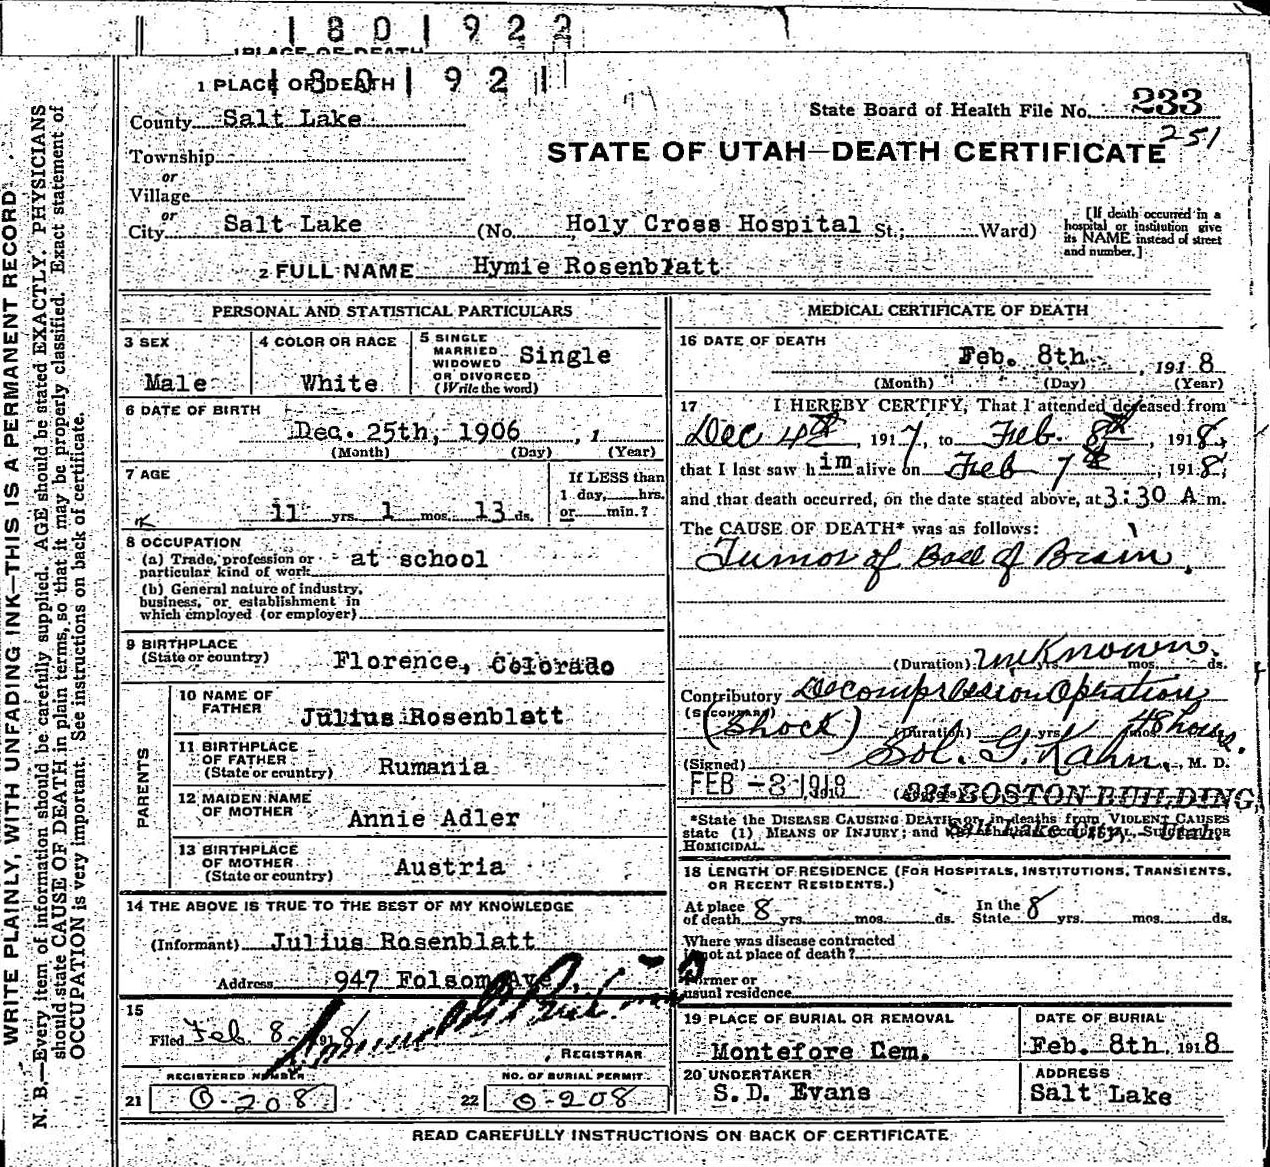 1 8 0 1 9 2 2
PLACE OF DEATH
1 8 0 1 9 2 1
1 PLACE OF DEATH
State Board of Health File No. 233
251
County Salt Lake
STATE OF UTAH—DEATH CERTIFICATE
Township
or
Village
or
City Salt Lake (No. Holy Cross Hospital St.; Ward)
[If death occurred in a hospital or institution give its NAME instead of street and number.]
2 FULL NAME Hymie Rosenblatt
PERSONAL AND STATISTICAL PARTICULARS
3 SEX
Male
4 COLOR OR RACE
White
5 SINGLE
MARRIED
WIDOWED
OR DIVORCED
(Write the word)
Single
6 DATE OF BIRTH
Dec. 25th, 1906 , 1
(Month) (Day) (Year)
7 AGE
11 yrs. 1 mos. 13 ds.
If LESS than
1 day, hrs.
or min.?
8 OCCUPATION
(a) Trade, profession or
particular kind of work at school
(b) General nature of industry,
business, or establishment in
which employed (or employer)
9 BIRTHPLACE
(State or country) Florence, Colorado
PARENTS
10 NAME OF
FATHER Julius Rosenblatt
11 BIRTHPLACE
OF FATHER
(State or country) Rumania
12 MAIDEN NAME
OF MOTHER Annie Adler
13 BIRTHPLACE
OF MOTHER
(State or country) Austria
14 THE ABOVE IS TRUE TO THE BEST OF MY KNOWLEDGE
(Informant) Julius Rosenblatt
Address 947 Folsom Ave.,
15
Filed Feb. 8 1918
, REGISTRAR
REGISTERED NUMBER
21 0-208
NO. OF BURIAL PERMIT
22 0-208
MEDICAL CERTIFICATE OF DEATH
16 DATE OF DEATH
Feb. 8th , 1918
(Month) (Day) (Year)
17 I HEREBY CERTIFY, That I attended deceased from
Dec 4th, 1917, to Feb. 8th, 1918,
that I last saw him alive on Feb 7th, 1918,
and that death occurred, on the date stated above, at 3:30 A m.
The CAUSE OF DEATH* was as follows:
Tumor of Base of Brain.
(Duration) unknown. yrs. mos. ds.
Contributory Decompression Operation
(Secondary)
(Shock) (Duration) yrs. mos. 48 hours.
(Signed) Sol. G. Kahn, M. D.
FEB -8 1918 , 191 (Address) 221 BOSTON BUILDING
Salt Lake City, Utah
*State the DISEASE CAUSING DEATH, or, in deaths from VIOLENT CAUSES
state (1) MEANS OF INJURY; and SUICIDAL OR
HOMICIDAL.
18 LENGTH OF RESIDENCE (FOR HOSPITALS, INSTITUTIONS, TRANSIENTS,
OR RECENT RESIDENTS.)
At place
of death 8 yrs. mos. ds.
In the
State 8 yrs. mos. ds.
Where was disease contracted
if not at place of death?
Former or
usual residence
19 PLACE OF BURIAL OR REMOVAL
Montefore Cem.
DATE OF BURIAL
Feb. 8th, 1918
20 UNDERTAKER
S.D. Evans
ADDRESS
Salt Lake
READ CAREFULLY INSTRUCTIONS ON BACK OF CERTIFICATE
WRITE PLAINLY, WITH UNFADING INK—THIS IS A PERMANENT RECORD
N. B.—Every item of information should be carefully supplied. AGE should be stated EXACTLY. PHYSICIANS
should state CAUSE OF DEATH in plain terms, so that it may be properly classified. Exact statement of
OCCUPATION is very important. See instructions on back of certificate.